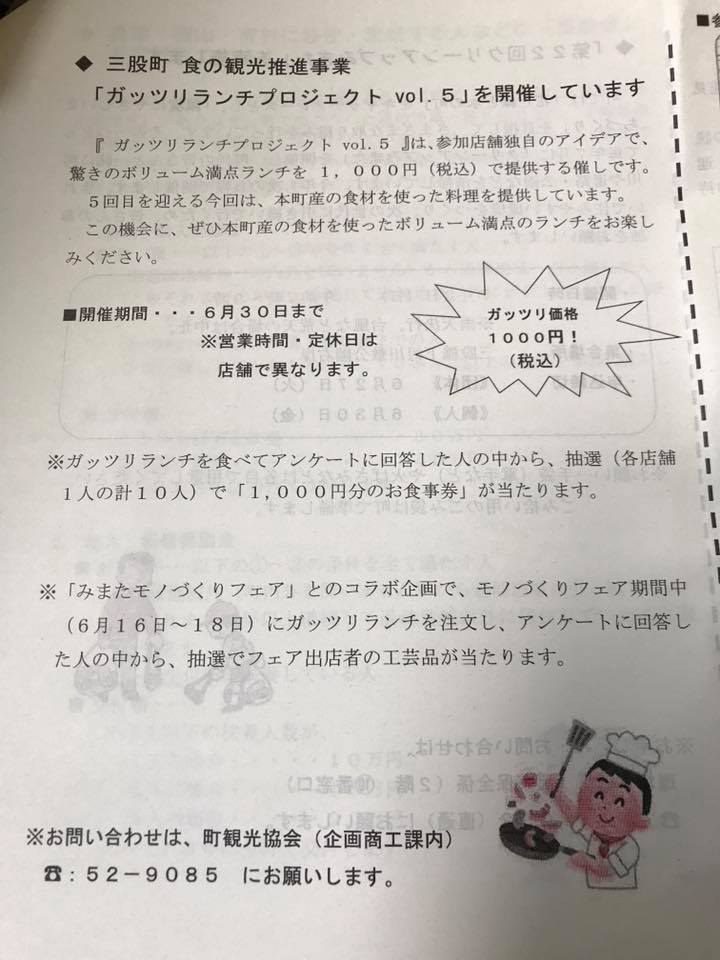 ◆ 三股町 食の観光推進事業
「ガッツリランチプロジェクト vol.５」を開催しています
『 ガッツリランチプロジェクト vol.５ 』は、参加店舗独自のアイデアで、
驚きのボリューム満点ランチを １，０００円（税込）で提供する催しです。
５回目を迎える今回は、本町産の食材を使った料理を提供しています。
この機会に、ぜひ本町産の食材を使ったボリューム満点のランチをお楽し
みください。
■開催期間・・・６月３０日まで
※営業時間・定休日は
店舗で異なります。
ガッツリ価格
１０００円！
（税込）
※ガッツリランチを食べてアンケートに回答した人の中から、抽選（各店舗
１人の計１０人）で「１,０００円分のお食事券」が当たります。
※「みまたモノづくりフェア」とのコラボ企画で、モノづくりフェア期間中
（６月１６日～１８日）にガッツリランチを注文し、アンケートに回答し
た人の中から、抽選でフェア出店者の工芸品が当たります。
※お問い合わせは、町観光協会（企画商工課内）
☎：５２－９０８５ にお願いします。